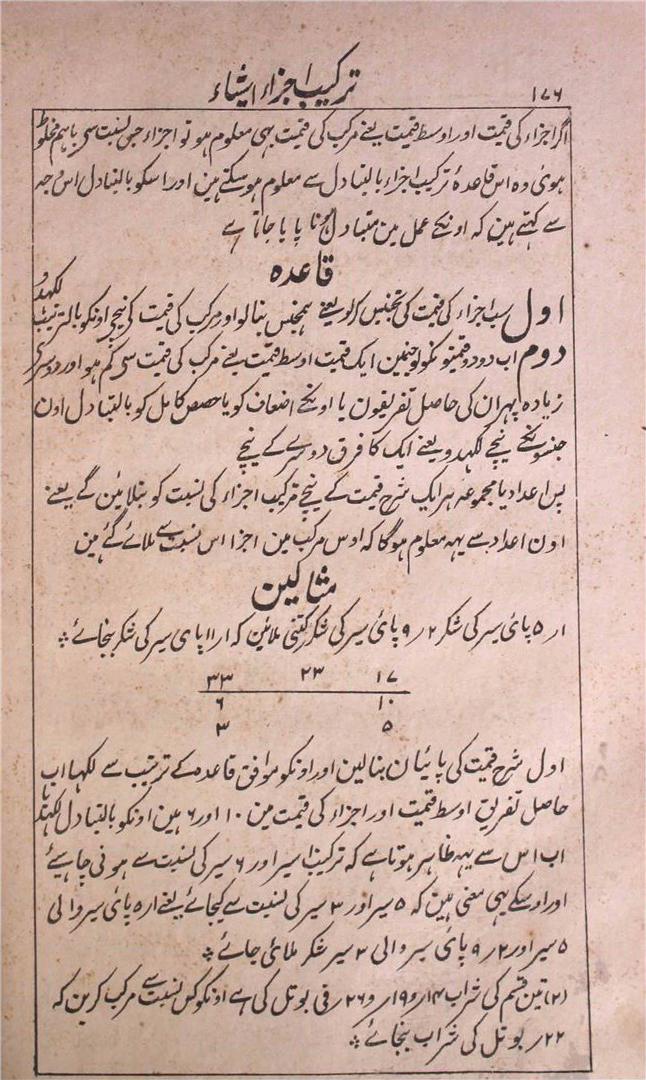 ۱۷۶
ترکیب اجزاء اشیاء
اگر اجزاء کی قیمت اور اوسط قیمت یعنے مرکب کی قیمت بہی معلوم ہو تو اجزاء جس نسبت سی باہم مخلوط
ہوئی وہ اس قاعدۂ ترکیب اجزاء بالتبادل سے معلوم ہو سکتے ہین اور اسکو بالتبادل اسوجہ
سے کہتے ہین کہ اونکے عمل مین متبادل ہونا پایا جاتا ہے
قاعدہ
اول سب اجزاء کی قیمت کی تجنیس کرلو یعنے ہمجنس بنا لو اور مرکب کی قیمت کی نیچی اونکو بالترتیب لکہدو
دوم اب دو دو قیمتو نکو لو جنمین ایک قیمت اوسط قیمت یعنے مرکب کی قیمت سی کم ہو اور دوسری
زیادہ پہر ان کی حاصل تفریقون یا اونکے اضعاف کو یا حصص کامل کو بالتبادل اون
جنسونکے نیچے لکہدو یعنے ایک کا فرق دوسرے کے نیچے
پس اعداد یا مجموعہ ہر ایک شرح قیمت کے نیچے ترکیب اجزاء کی نسبت کو بتلائین گے یعنے
اون اعداد سے یہہ معلوم ہوگا کہ اوس مرکب مین اجزا اس نسبت سے ملائے گئے ہین
مثالین
۱ر ۵ پائی سیر کی شکر ۲ر ۹ پائی سیر کی شکر کتنی ملائین کہ ۱ر ۱۱ پای سیر کی شکر بنجائے ⁂
۱۷ ۲۳ ۳۳
۱۰ ۶
۵ ۳
اول شرح قیمت کی پائیان بنالین اور اونکو موافق قاعدہ کے ترتیب سے لکہا اب
حاصل تفریق اوسط قیمت اور اجزاء کی قیمت مین ۱۰ اور ۶ ہین اونکو بالتبادل لکہا
اب اس سے یہہ ظاہر ہوتا ہے کہ ترکیب ۱۰ سیر اور ۶ سیر کی نسبت سے ہونی چاہیئے
اور اوسکے یہی معنی ہین کہ ۵ سیر اور ۳ سیر کی نسبت سے کیجائے یعنے ۱ر ۵ پائی سیر والی
۵ سیر اور ۲ر ۹ پائی سیر والی ۳ سیر شکر ملائی جائے ⁂
(۲) تین قسم کی شراب ۱۴ر و ۱۹ر و ۲۶ر فی بوتل کی ہے اونکو کس نسبت سے مرکب کرین کہ
۲۲ر بوتل کی شراب بنجائے ⁂